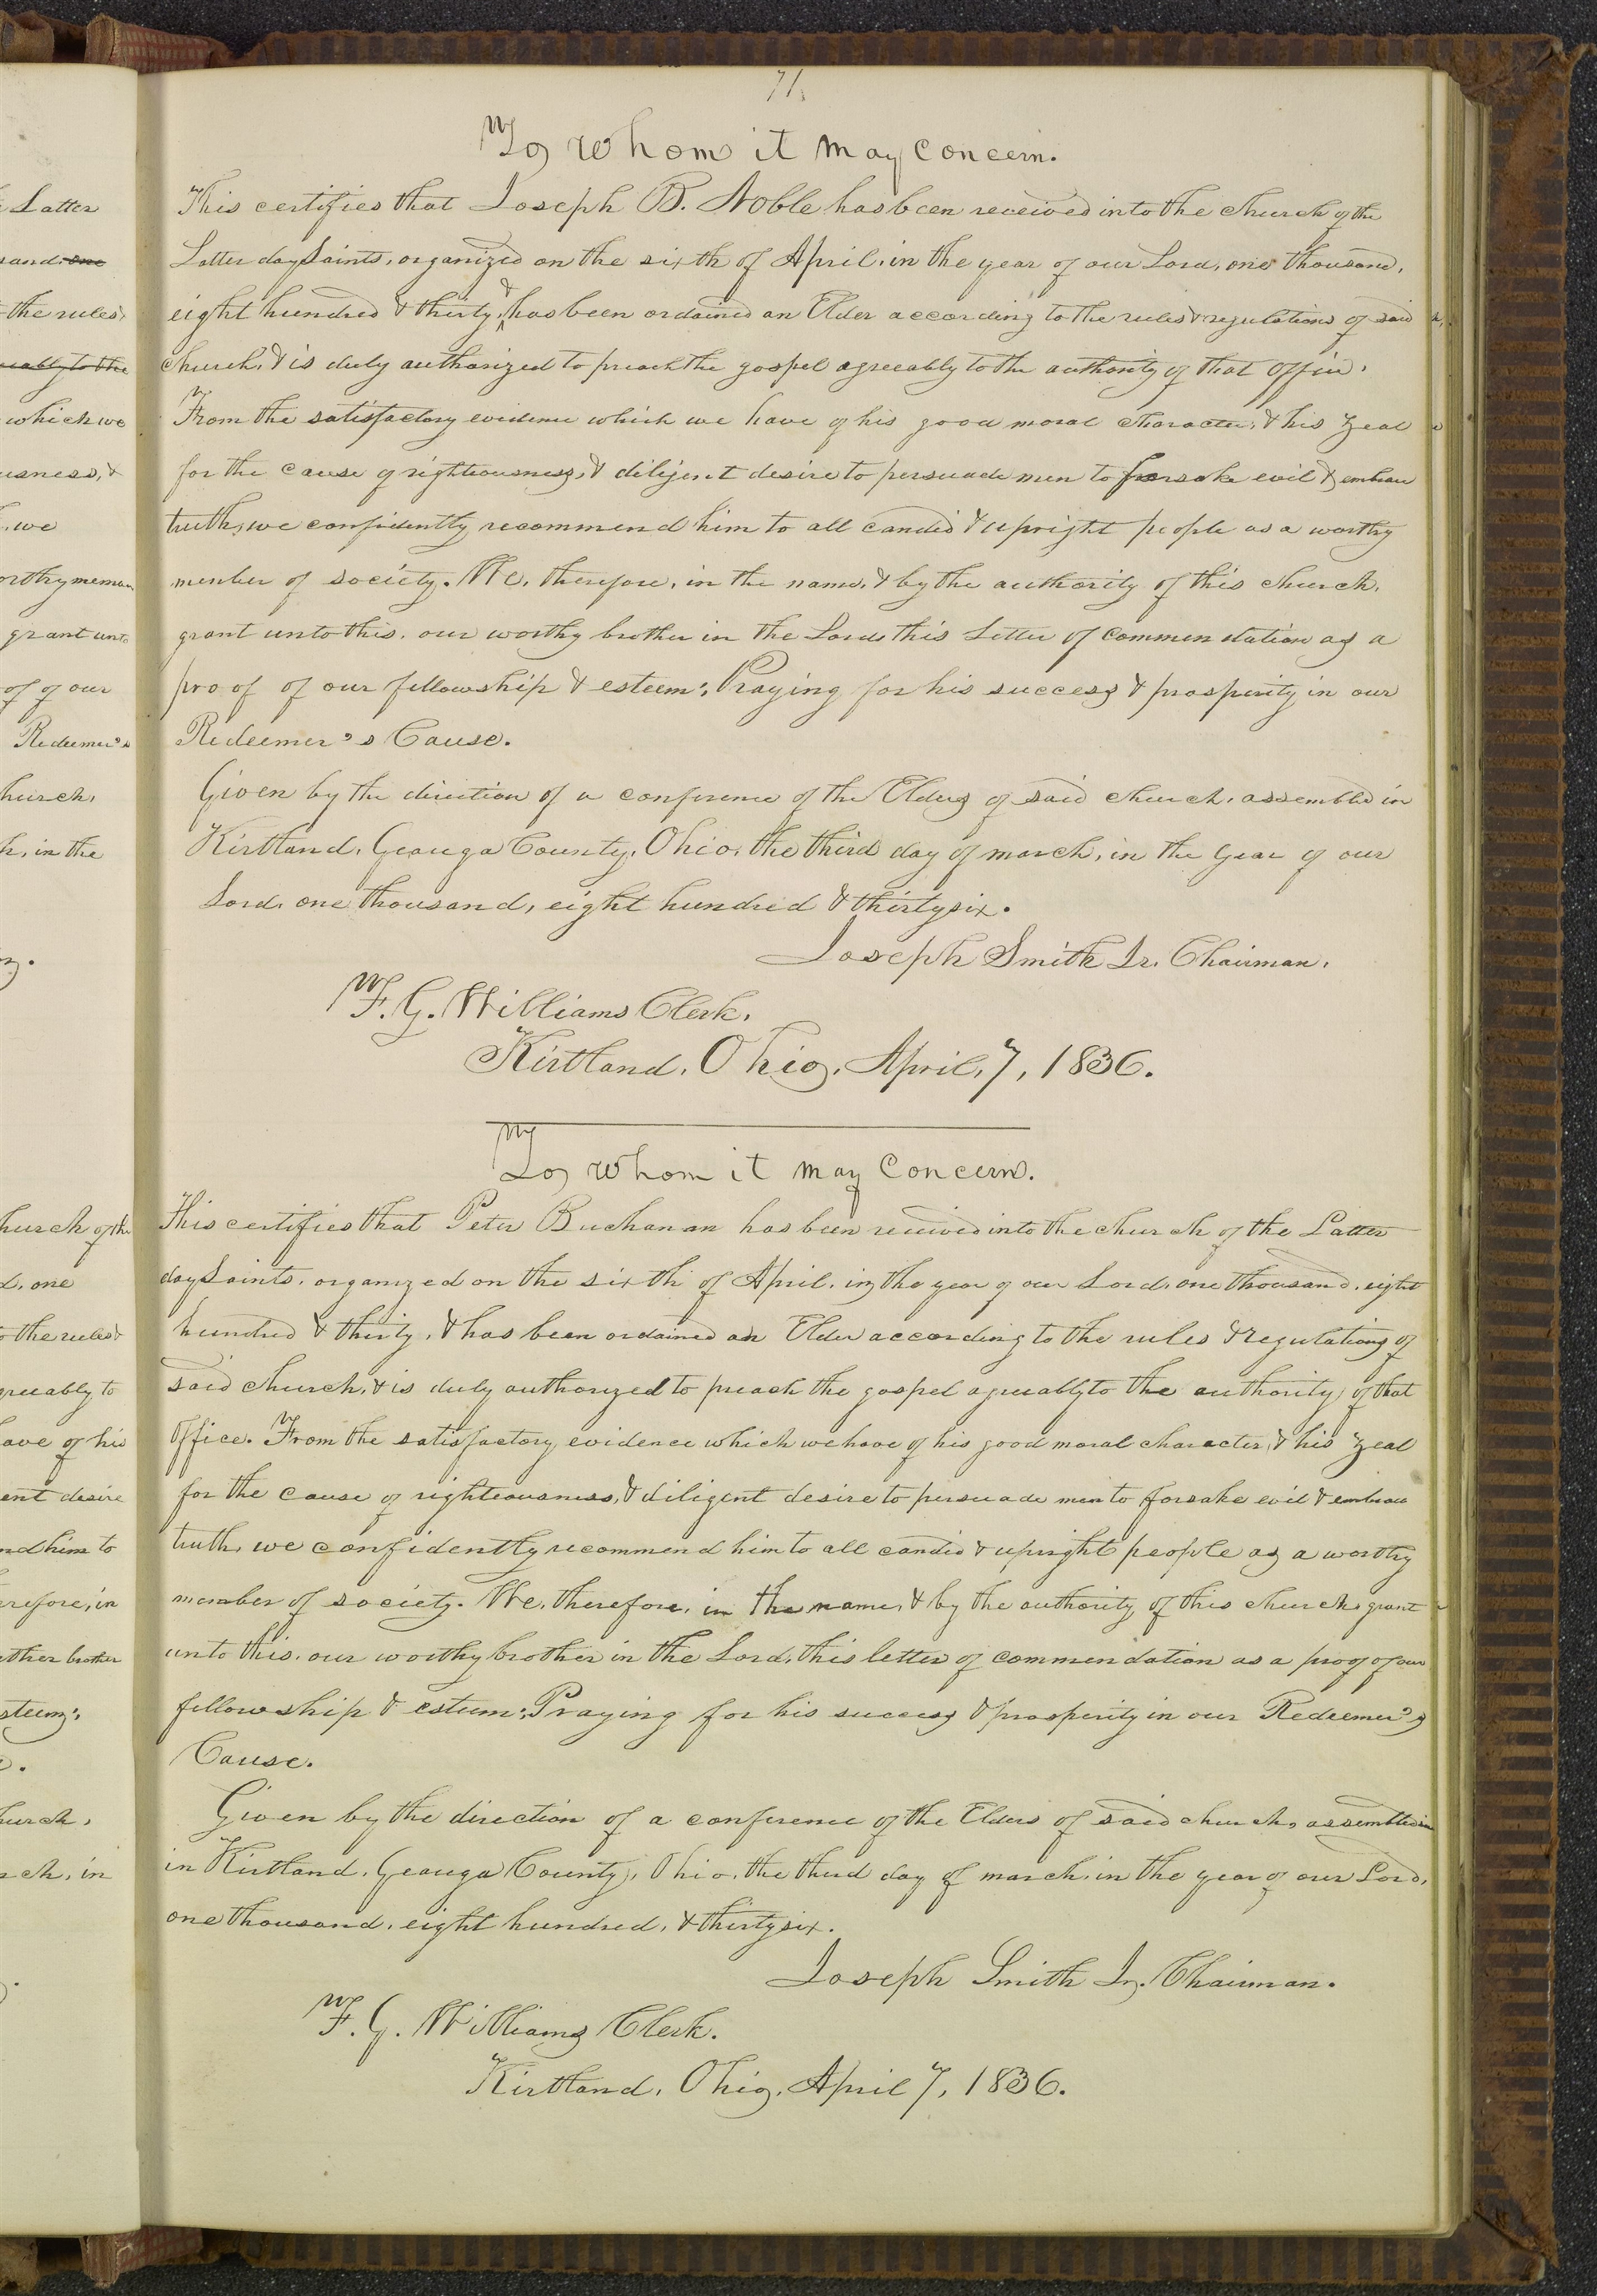 71
To whom it may concern.
This certifies that Joseph B. Noble has been received into the church of the
Latter day Saints, organized on the sixth of April, in the year of our Lord, one thousand,
eight hundred & thirty, & has been ordained an Elder according to the rules & regulations of said
church, & is duly authorized to preach the gospel agreeably to the authority of that office.
From the satisfactory evidence which we have of his good moral character, & his zeal
for the cause of righteousness, & diligent desire to persuade men to forsake evil & embrace
truth, we confidently recommend him to all candid & upright people as a worthy
member of society. We, therefore, in the name, & by the authority of this church,
grant unto this, our worthy brother in the Lord, this letter of commendation as a
proof of our fellowship & esteem; Praying for his success & prosperity in our
Redeemer's Cause.
Given by the direction of a conference of the Elders of said church, assembled in
Kirtland, Geauga County, Ohio, the third day of march, in the year of our
Lord, one thousand, eight hundred & thirty six.
Joseph Smith Jr. Chairman.
F. G. Williams Clerk.
Kirtland, Ohio, April, 7, 1836.
To whom it may Concern.
This certifies that Peter Buchanan has been received into the church of the Latter
day Saints, organized on the sixth of April, in the year of our Lord, one thousand, eight
hundred & thirty, & has been ordained an Elder according to the rules & regulations of
said church, & is duly authorized to preach the gospel agreeably to the authority of that
office. From the satisfactory evidence which we have of his good moral character, & his zeal
for the cause of righteousness, & diligent desire to persuade men to forsake evil & embrace
truth, we confidently recommend him to all candid & upright people as a worthy
member of society. We, therefore, in the name, & by the authority of this church, grant
unto this, our worthy brother in the Lord, this letter of commendation as a proof of our
fellowship & esteem; Praying for his success & prosperity in our Redeemer's
Cause.
Given by the direction of a conference of the Elders of said church, assembled in
in Kirtland, Geauga County, Ohio, the third day of march, in the year of our Lord,
one thousand, eight hundred, & thirty six.
Joseph Smith Jr. Chairman.
F. G. Williams Clerk.
Kirtland, Ohio, April 7, 1836.